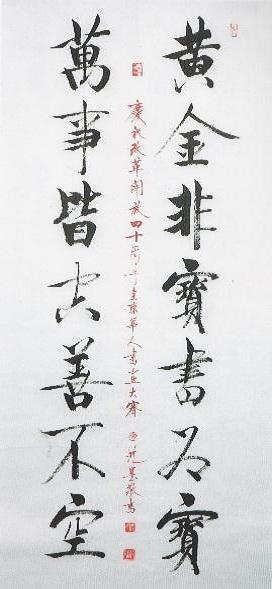 黄金非寶書為寶
慶祝改革開放四十周年全球華人書画大賽
萬事皆空善不空